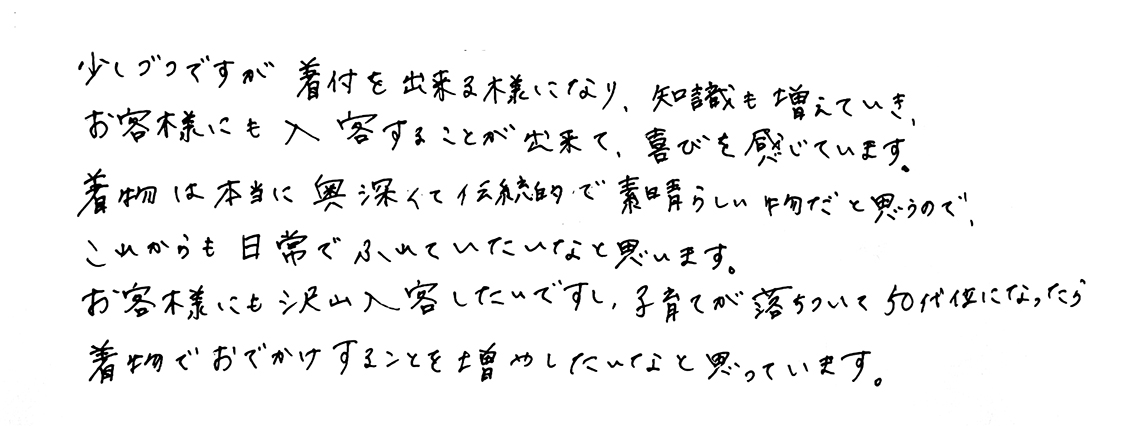 少しづつですが 着付を出来る様になり、知識も増えていき、
お客様にも入客することが出来て、喜びを感じています。
着物は本当に奥深くて伝統的で素晴らしい物だと思うので、
これからも日常でふれていたいなと思います。
お客様にも沢山入客したいですし、子育てが落ちついて50代位になったら
着物でおでかけすることを増やしたいなと思っています。